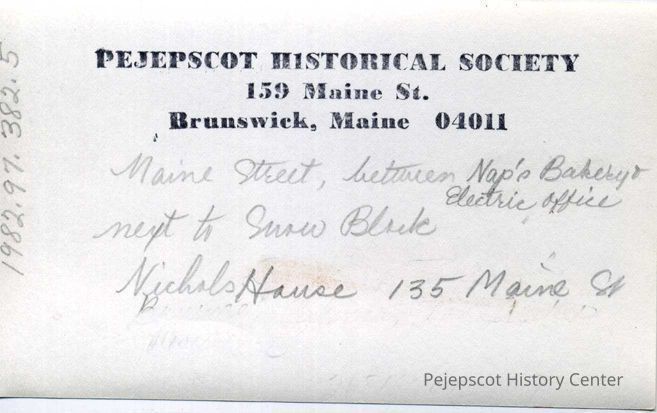 PEJEPSCOT HISTORICAL SOCIETY
159 Maine St.
Brunswick, Maine 04011
Maine Street, between Nap's Bakery &
Electric office
next to Snow Block
Nichols House 135 Maine St
1982.97.382.5
Pejepscot History Center